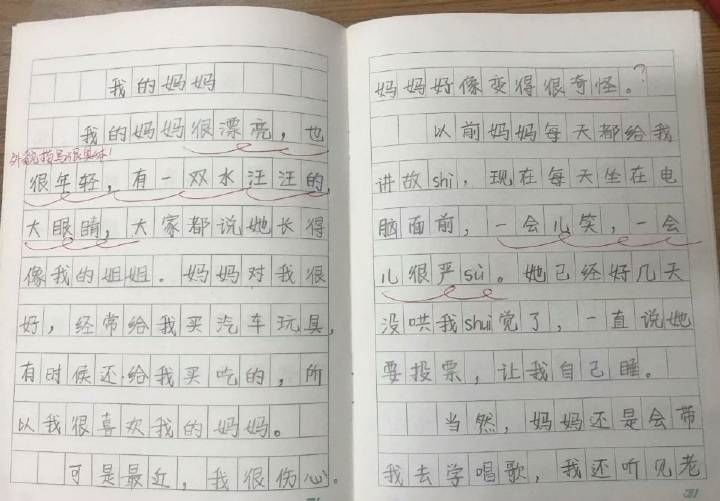 我的妈妈
我的妈妈很漂亮，也
外貌描写很具体！
很年轻，有一双水汪汪的
大眼睛，大家都说她长得
像我的姐姐．妈妈对我很
好，经常给我买汽车玩具，
有时候还给我买吃的，所
以我很喜欢我的妈妈。
可是最近，我很伤心．
妈妈好像变得很奇怪。?
以前妈妈每天都给我
讲故shi，现在每天坐在电
脑面前，一会儿笑，一会
儿很严sù。她已经好几天
没哄我shuì觉了，一直说她
要投票，让我自己睡。
当然，妈妈还是会带
我去学唱歌，我还听见老